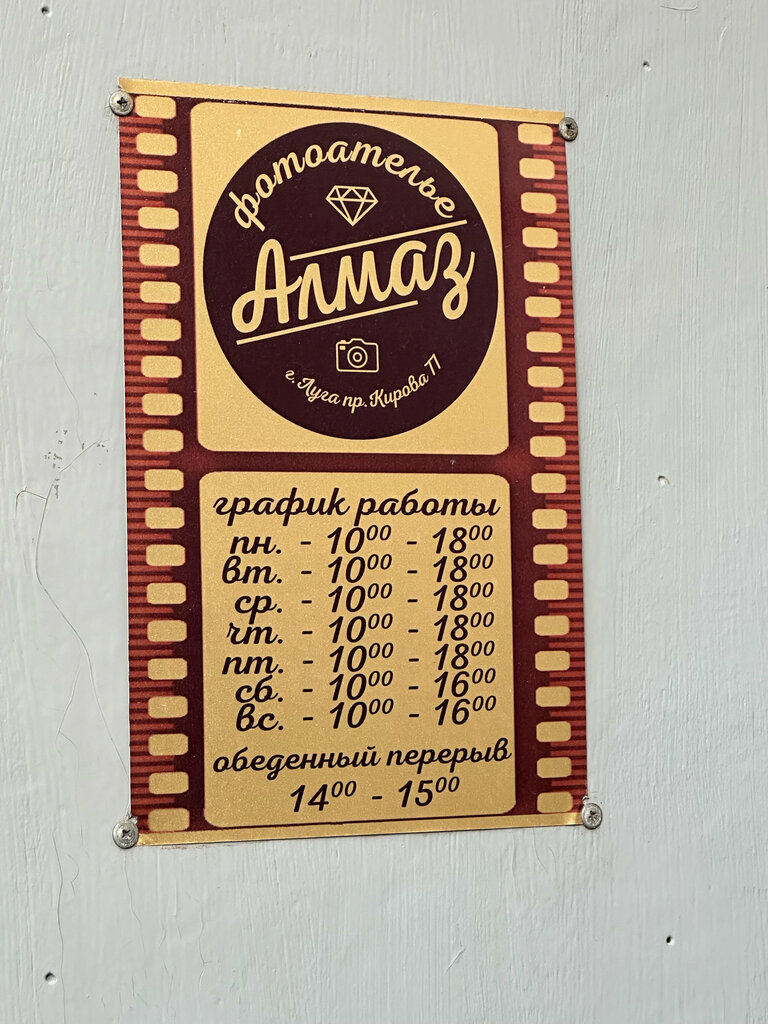 фотоателье
Алмаз
г. Луга пр. Кирова 77
график работы
пн. - 10⁰⁰ - 18⁰⁰
вт. - 10⁰⁰ - 18⁰⁰
ср. - 10⁰⁰ - 18⁰⁰
чт. - 10⁰⁰ - 18⁰⁰
пт. - 10⁰⁰ - 18⁰⁰
сб. - 10⁰⁰ - 16⁰⁰
вс. - 10⁰⁰ - 16⁰⁰
обеденный перерыв
14⁰⁰ - 15⁰⁰